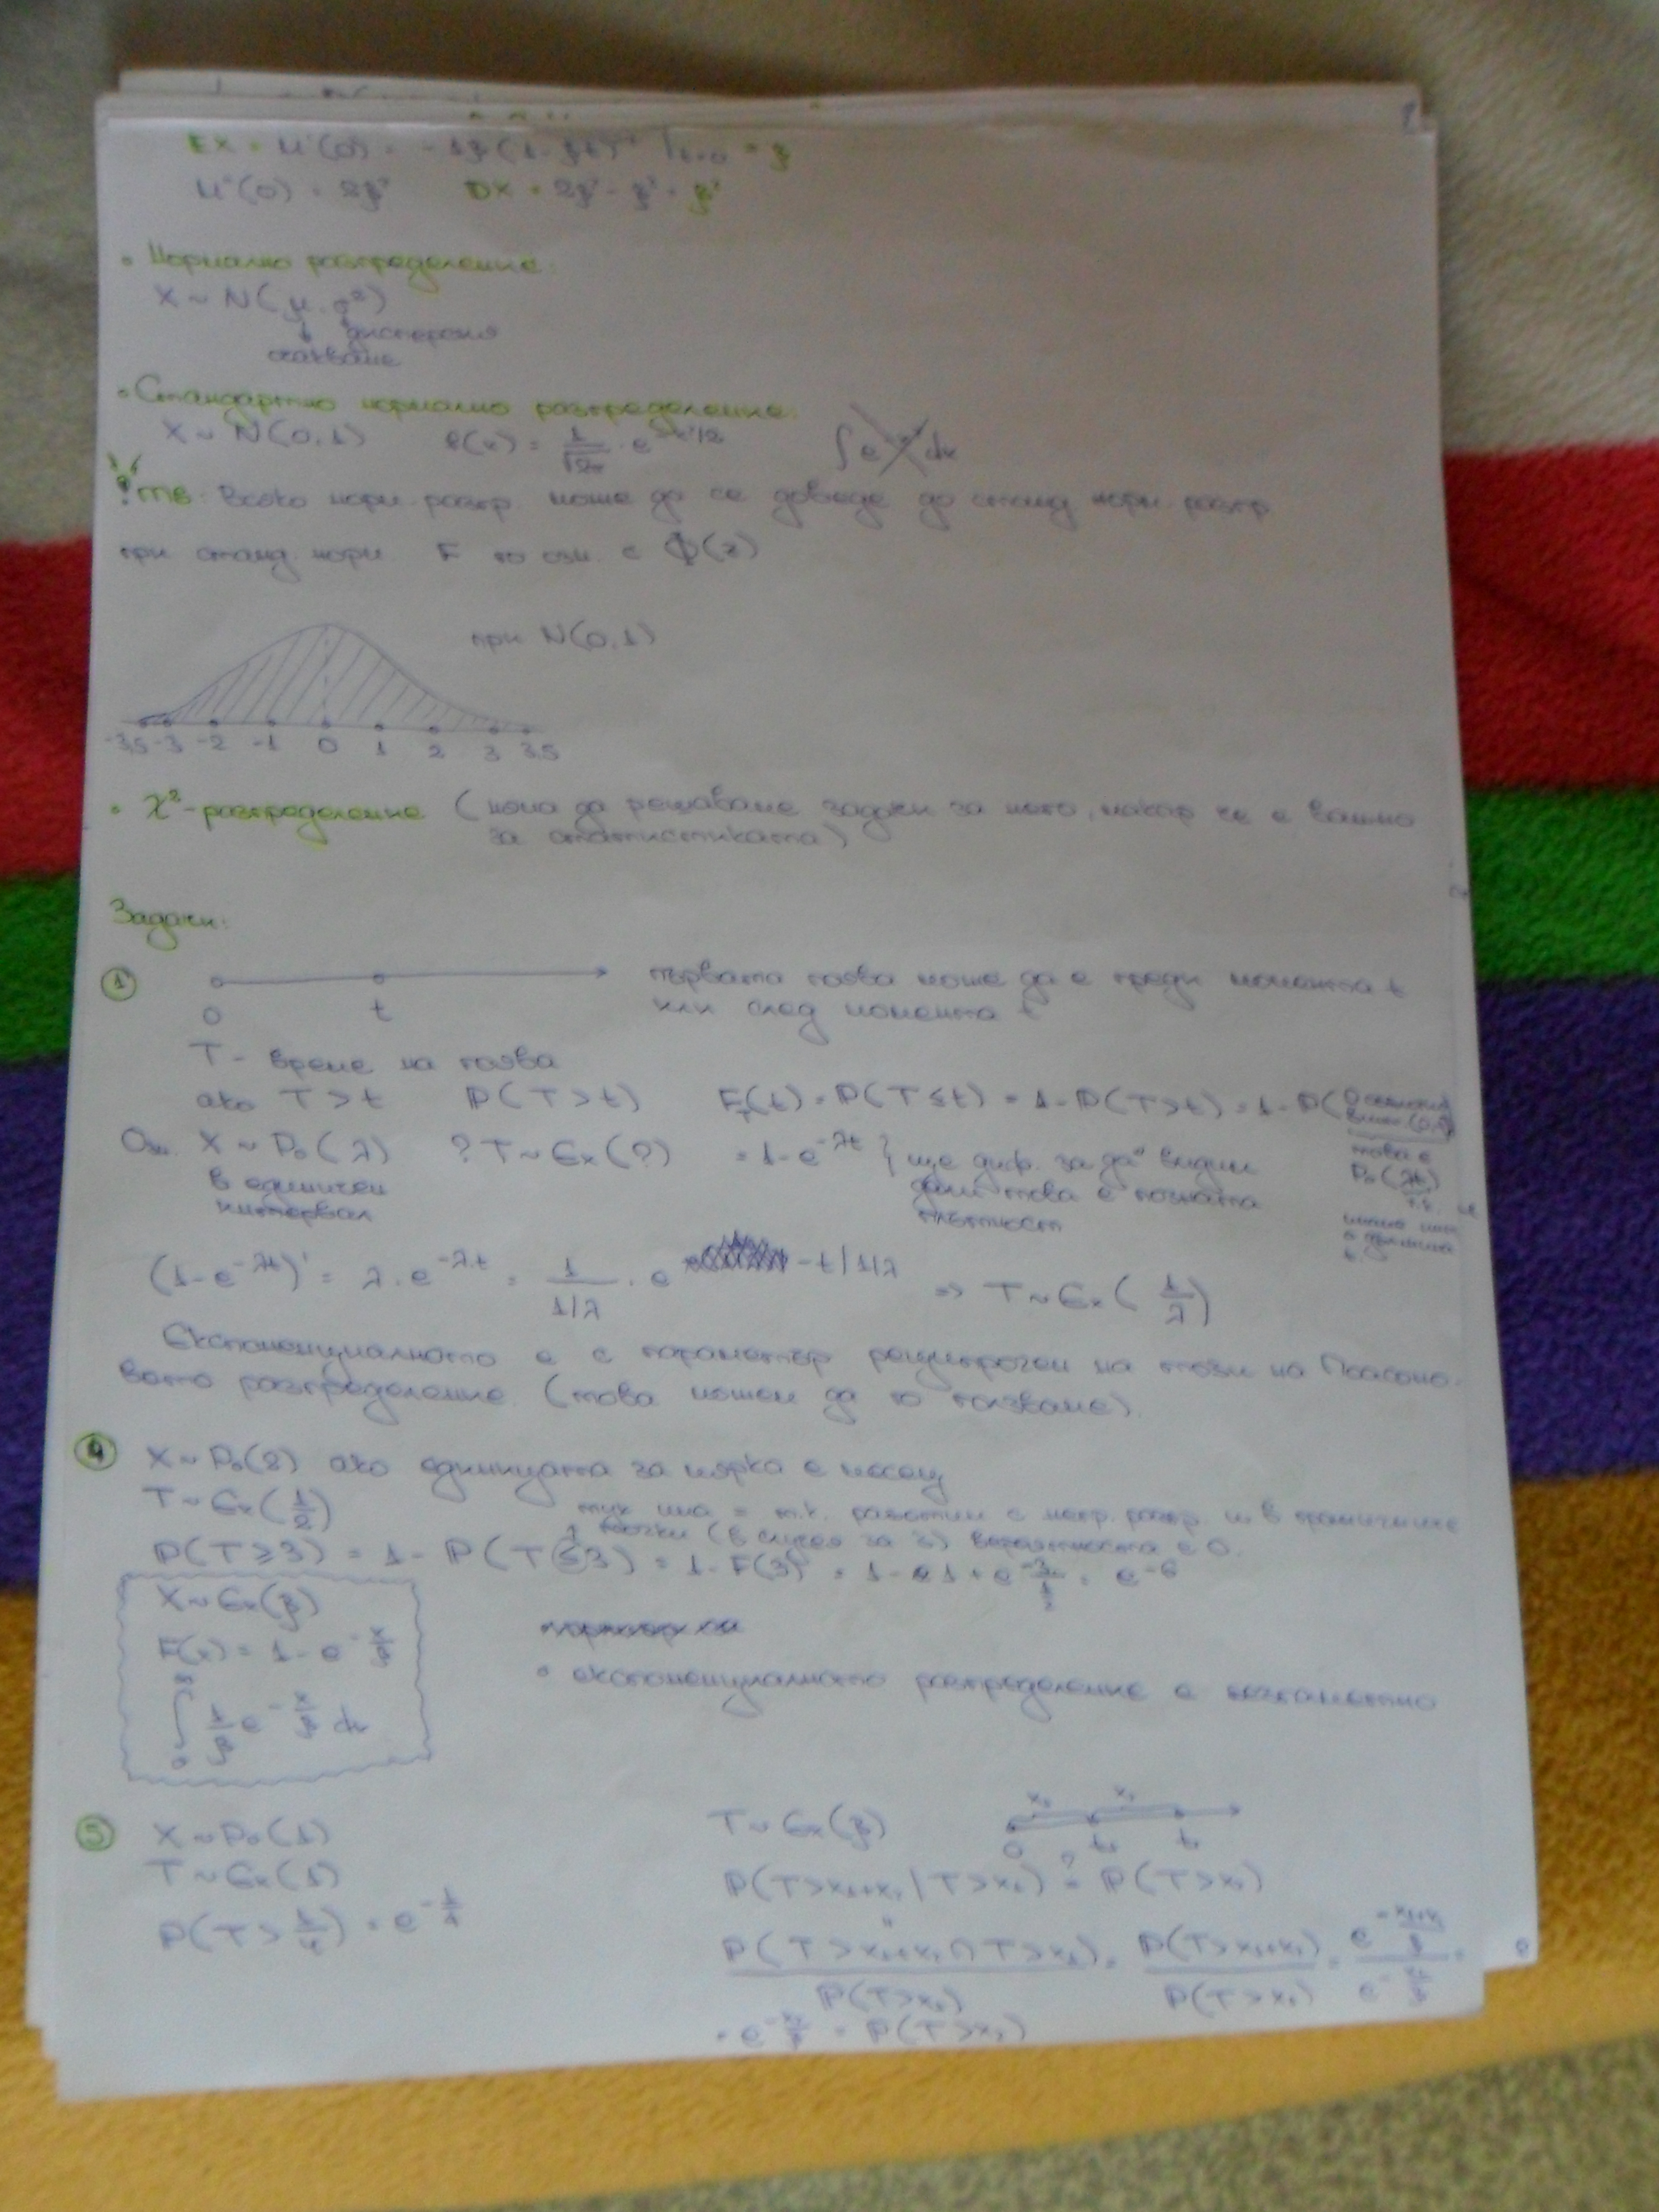 EX = M'(0) = -1β(1-βt)⁻² |t=0 = β
M''(0) = 2β² DX = 2β² - β² = β²
• Нормално разпределение:
X ~ N(μ, σ²)
дисперсия
очакване
• Стандартно нормално разпределение:
X ~ N(0,1) f(x) = 1/√2π . e^(-x²/2) ∫e dx
! тв. Всяко норм. разпр. може да се доведе до станд. норм. разпр.
при станд. норм. F го озн. с Φ(z)
при N(0,1)
-3,5 -3 -2 -1 0 1 2 3 3,5
• χ²-разпределение (няма да решаваме задачи за него, макар че е важно
за статистиката)
Задачи:
① първата поява може да е преди момента t
0 t или след момента t
T - време на поява
ако T > t P(T > t) F_T(t) = P(T ≤ t) = 1 - P(T > t) = 1 - P(
Озн. X ~ Po(λ) ? T ~ Ex(?) = 1 - e^(-λt) } ще диф. за да видим
в единичен дали това е позната това е
интервал плътност Po(λt)
(1 - e^(-λt))' = λ . e^(-λ.t) = 1/(1/λ) . e^(-t/1/λ) => T ~ Ex(1/λ)
Експоненциалното е с параметър реципрочен на този на Поасоно-
вото разпределение (това можем да го ползваме).
④ X ~ Po(2) ако единицата за мярка е месец
T ~ Ex(1/2) тук има = т.к. работим с непр. разпр. и в граничните
точки (в случая за 3) вероятността е 0.
P(T ≥ 3) = 1 - P(T ≤ 3) = 1 - F(3) = 1 - 1 + e^(-3/(1/2)) = e^(-6)
X ~ Ex(β)
F(x) = 1 - e^(-x/β)
∫₀^∞ 1/β e^(-x/β) dx
• експоненциалното разпределение е безпаметно
⑤ X ~ Po(1) T ~ Ex(β)
T ~ Ex(1) P(T > x₁+x₂ | T > x₁) =? P(T > x₂)
P(T > 1/4) = e^(-1/4)
P(T > x₁+x₂ ∩ T > x₁)/P(T > x₁) = P(T > x₁+x₂)/P(T > x₁) = e^(-(x₁+x₂)/β)/e^(-x₁/β) =
= e^(-x₂/β) = P(T > x₂)